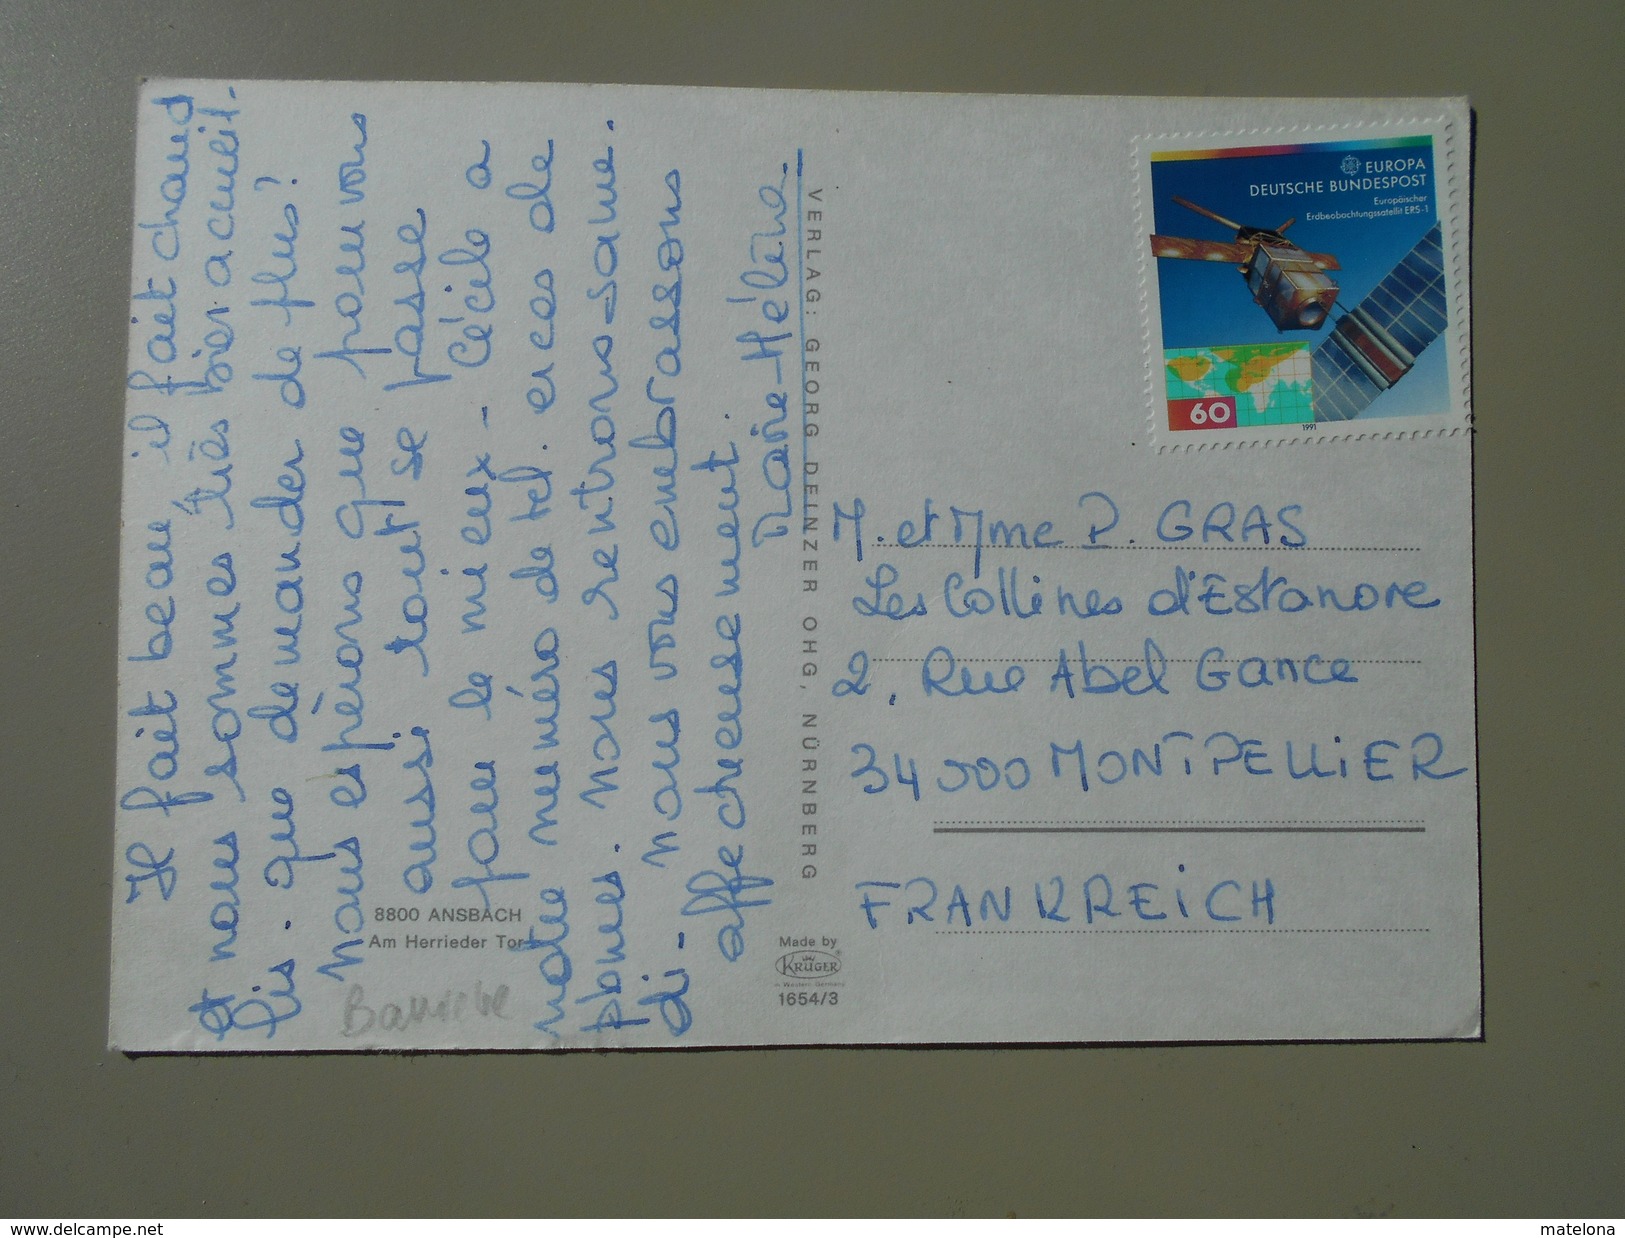 Il fait beau, il fait chaud
et nous sommes très bien accueil-
lis. que demander de plus?
Nous espérons que pour vous
aussi tout se passe
pour le mieux - Cécile a
notre numéro de tel. en cas de
pones. nous rentrons same-
di - nous vous embrassons
affectueusement.
Marie-Hélène
8800 ANSBACH
Am Herrieder Tor
VERLAG: GEORG DEINZER OHG, NÜRNBERG
Made by
KRÜGER
in Western Germany
1654/3
EUROPA
DEUTSCHE BUNDESPOST
Europäischer
Erdbeobachtungssatellit ERS-1
60
1991
M. et Mme P. GRAS
Les Collines d'Estanove
2, Rue Abel Gance
34000 MONTPELLIER
FRANKREICH
www.delcampe.net
matelona